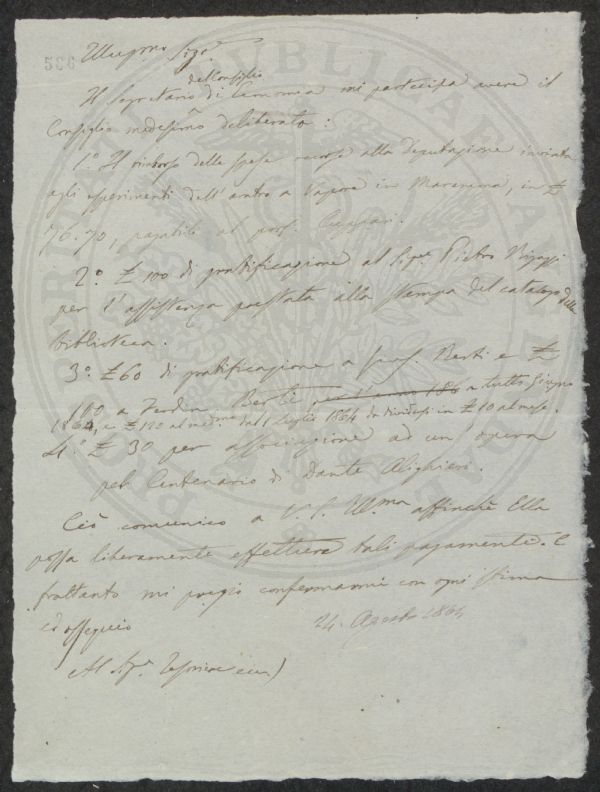 536
Illmo Sigre
del Consiglio
Il Segretario di Economia mi partecipa avere il
Consiglio medesimo deliberato:
1º. Il rimborso delle spese occorse alla Deputazione inviata
agli esperimenti dell'aratro a Vapore in Maremma, in £
76.70, pagabili al prof. Cuppari.
2º £ 100 di gratificazione al Sigr Pietro
per l'assistenza prestata alla stampa del catalogo della
biblioteca.
3º £60 di gratificazione a prof. Berti e £
100 a Ferdin. Berti per l'anno 186 a tutto Giugno
1864, e £ 120 al med.mo dal 1 Luglio 1864 da dividersi in £10 al mese.
4.º £ 30 per associazione ad un'opera
pel Centenario di Dante Alighieri.
Ciò comunico a V. S. Ill.ma affinchè Ella
possa liberamente effettuare tali pagamenti. E
frattanto mi pregio confermarmi con ogni stima
ed ossequio
24. Agosto 1864
Al Sigr. Tesoriere